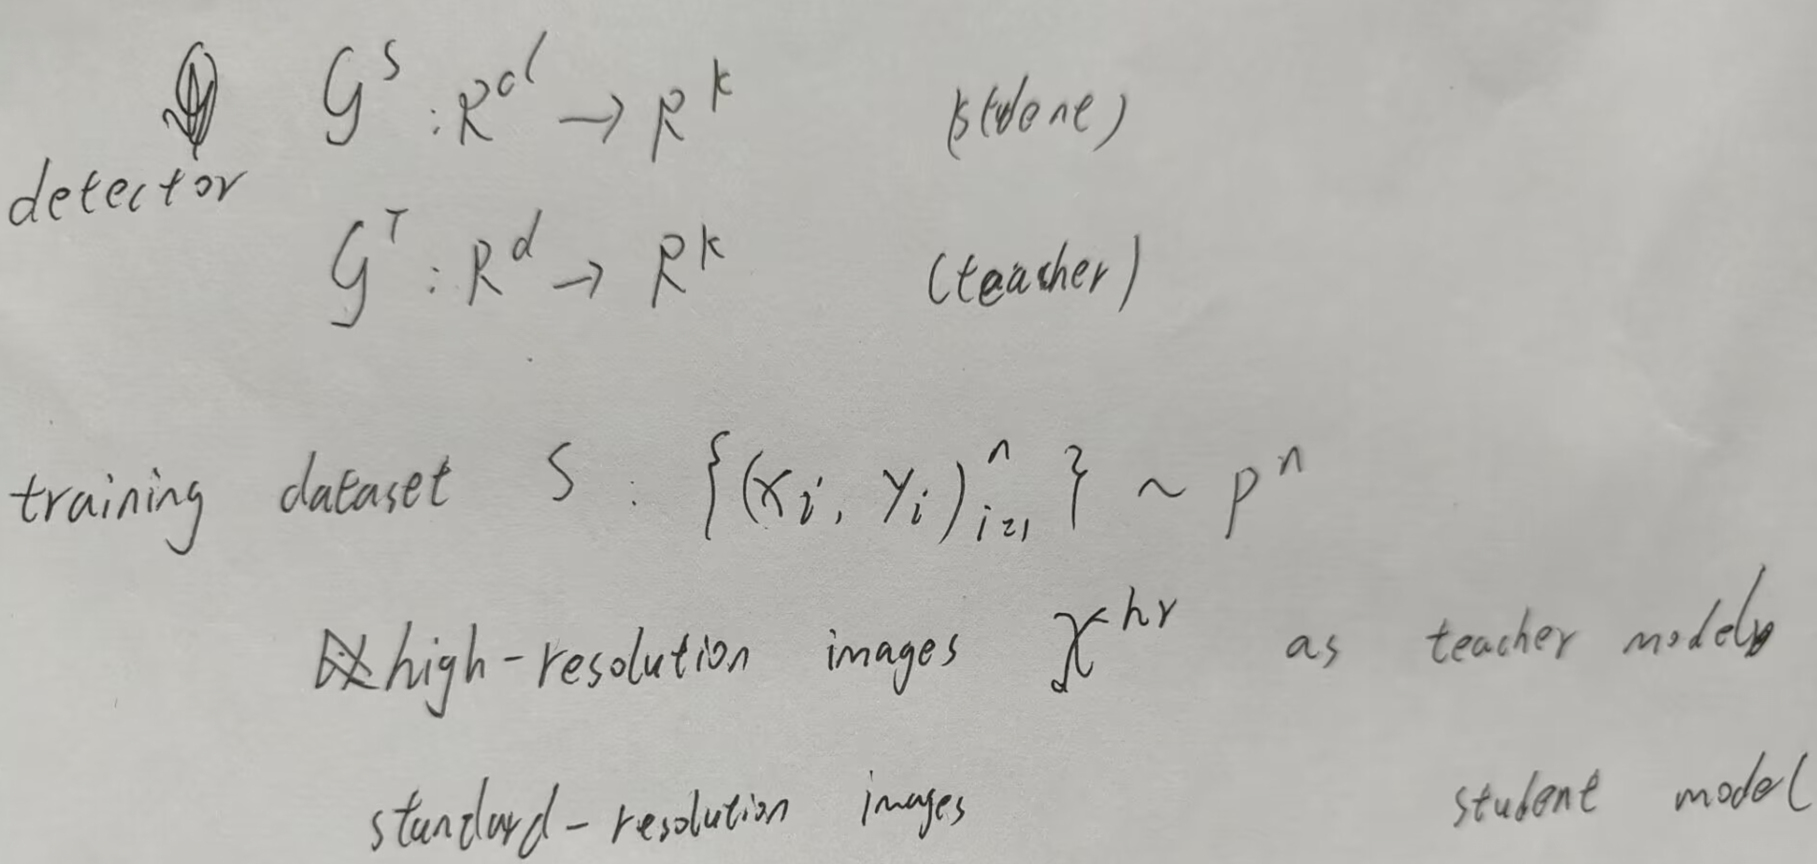 G^S : R^d → R^k (studone)
detector
G^T : R^d → R^k (teacher)
training dataset S : {(x_i, y_i)_{i=1}^n} ~ P^n
high-resolution images X^{hr} as teacher model
standard-resolution images student model